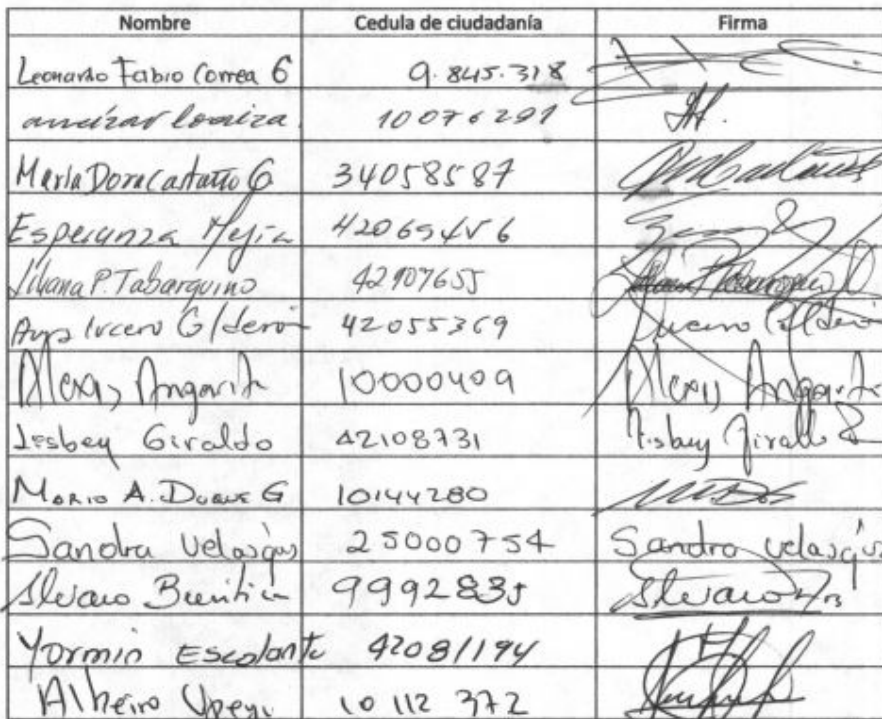 Nombre Cedula de ciudadanía Firma
Leonardo Fabio Correa G 9.845.318
ancizar loaiza. 10076291
María Dora Castaño G 34058587
Esperanza Mejía 42065456
Liliana P. Tabarquino 42107655
lucero Calderón 42055369 Lucero Calderón
Alexis Angarita 10000409 Alexis Angarita
Lesbey Giraldo 42108731 Lesbey Giraldo
Mario A. Duque G 10144280
Sandra Velasques 25000754 Sandra Velasques
Alvaro 9992835 Alvaro
Yormin Escalante 42081194
Alheiro Upegui 10 112 372